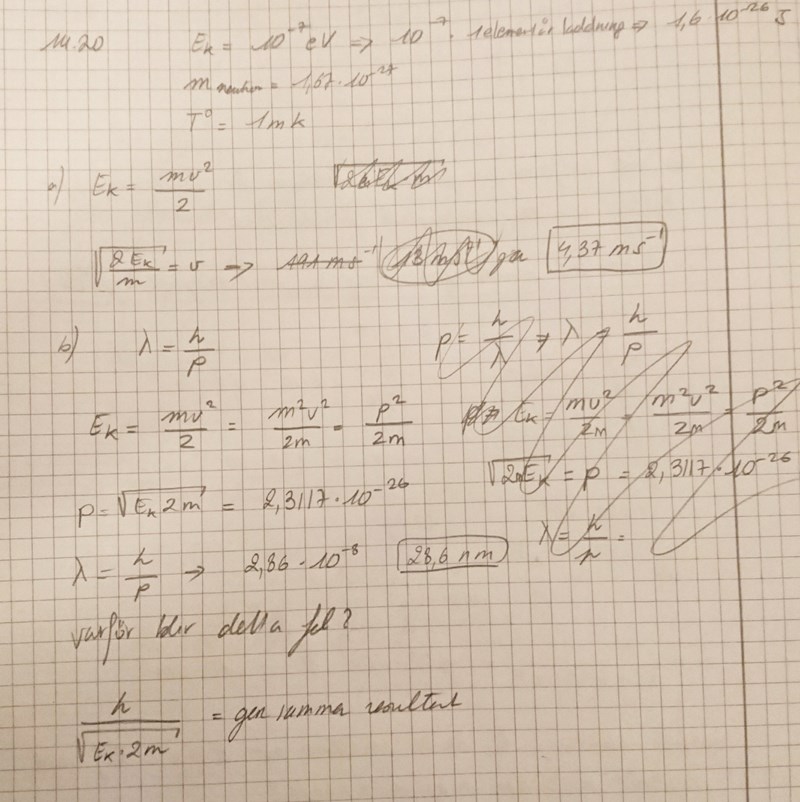 14.20 Eₖ = 10⁻⁷ eV ⇒ 10⁻⁷ · 1 elementär laddning ⇒ 1,6·10⁻²⁶ J
m neutron = 1,67·10⁻²⁷
T° = 1mk
a) Eₖ = mv²/2
√(2Eₖ/m) = v → 191 ms⁻¹ 13 ms⁻¹ ger 4,37 ms⁻¹
b) λ = h/p p = h/λ ⇒ λ = h/p
Eₖ = mv²/2 = m²v²/2m = p²/2m Eₖ = mv²/2m = m²v²/2m = p²/2m
p = √(Eₖ2m) = 2,3117·10⁻²⁶ √(2mEₖ) = p = 2,3117·10⁻²⁶
λ = h/p → 2,86·10⁻⁸ 28,6 nm λ = h/p =
varför blir detta fel?
h/√(Eₖ·2m) = ger samma resultat